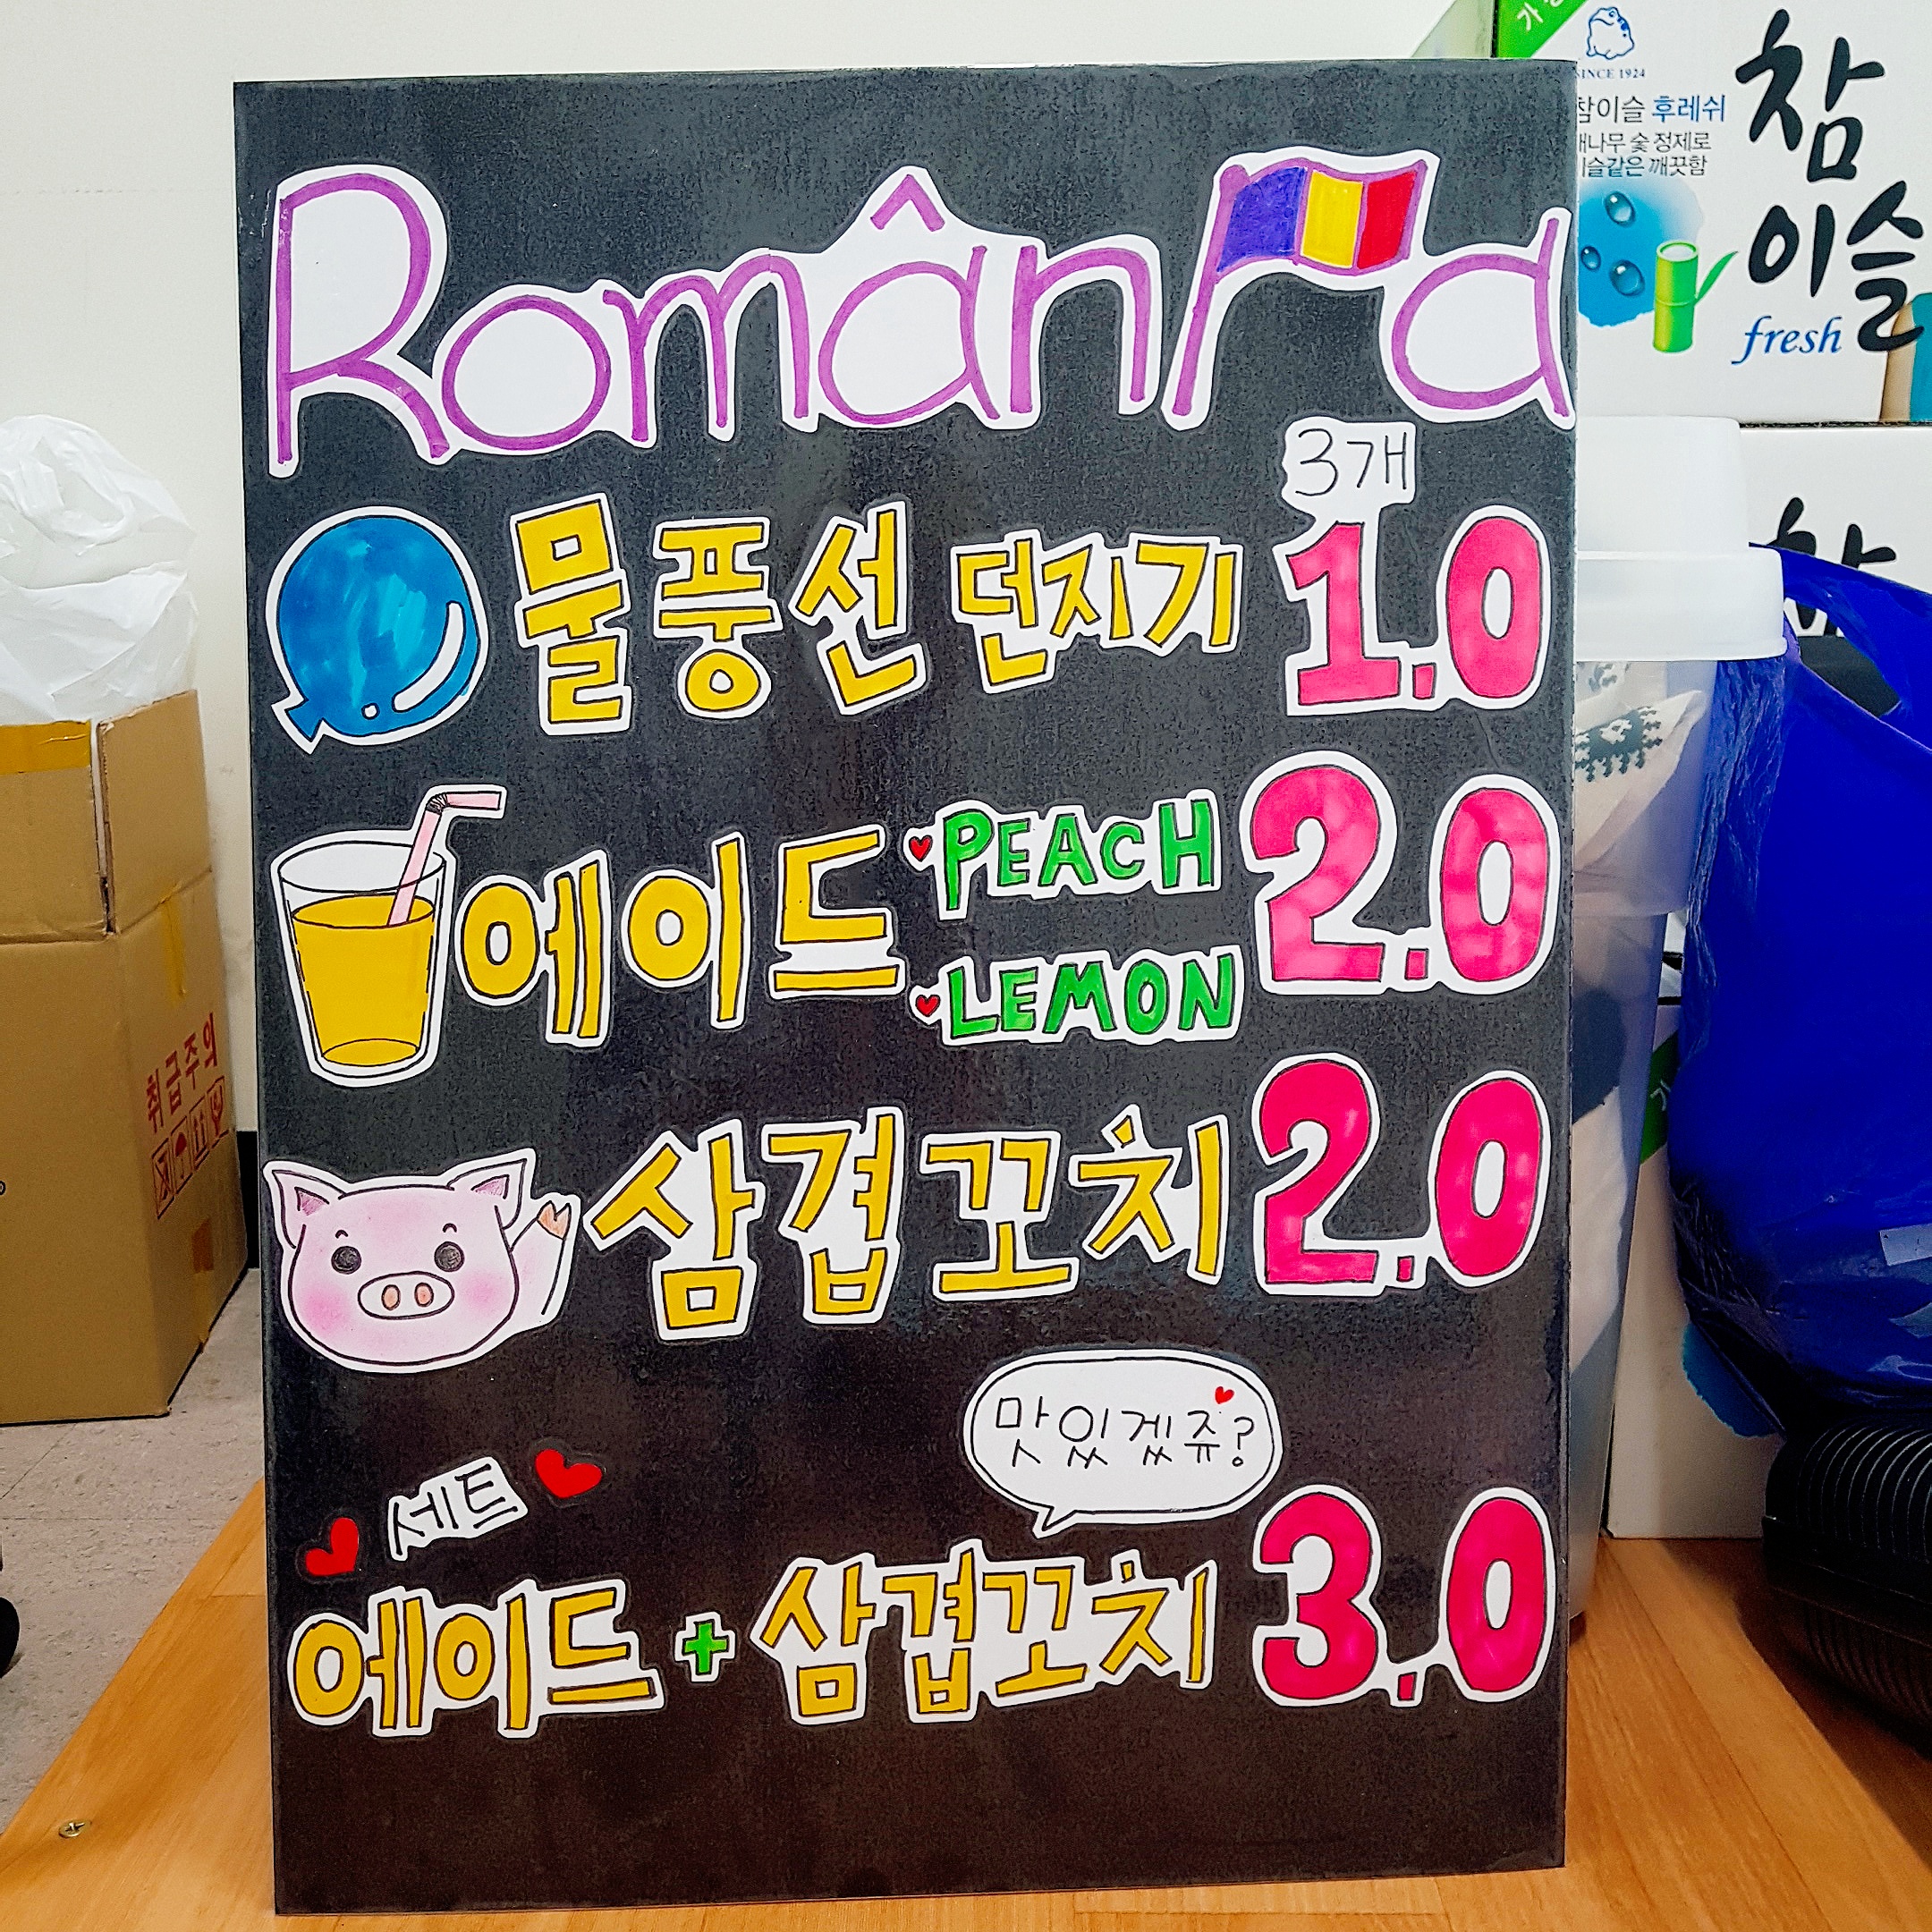 România
3개
물풍선 던지기 1.0
에이드 PEACH 2.0
LEMON
삼겹꼬치 2.0
맛있겠쥬?
세트
에이드 + 삼겹꼬치 3.0
SINCE 1924
참이슬 후레쉬
대나무 숯 정제로
이슬같은 깨끗함
참이슬
fresh
취급주의